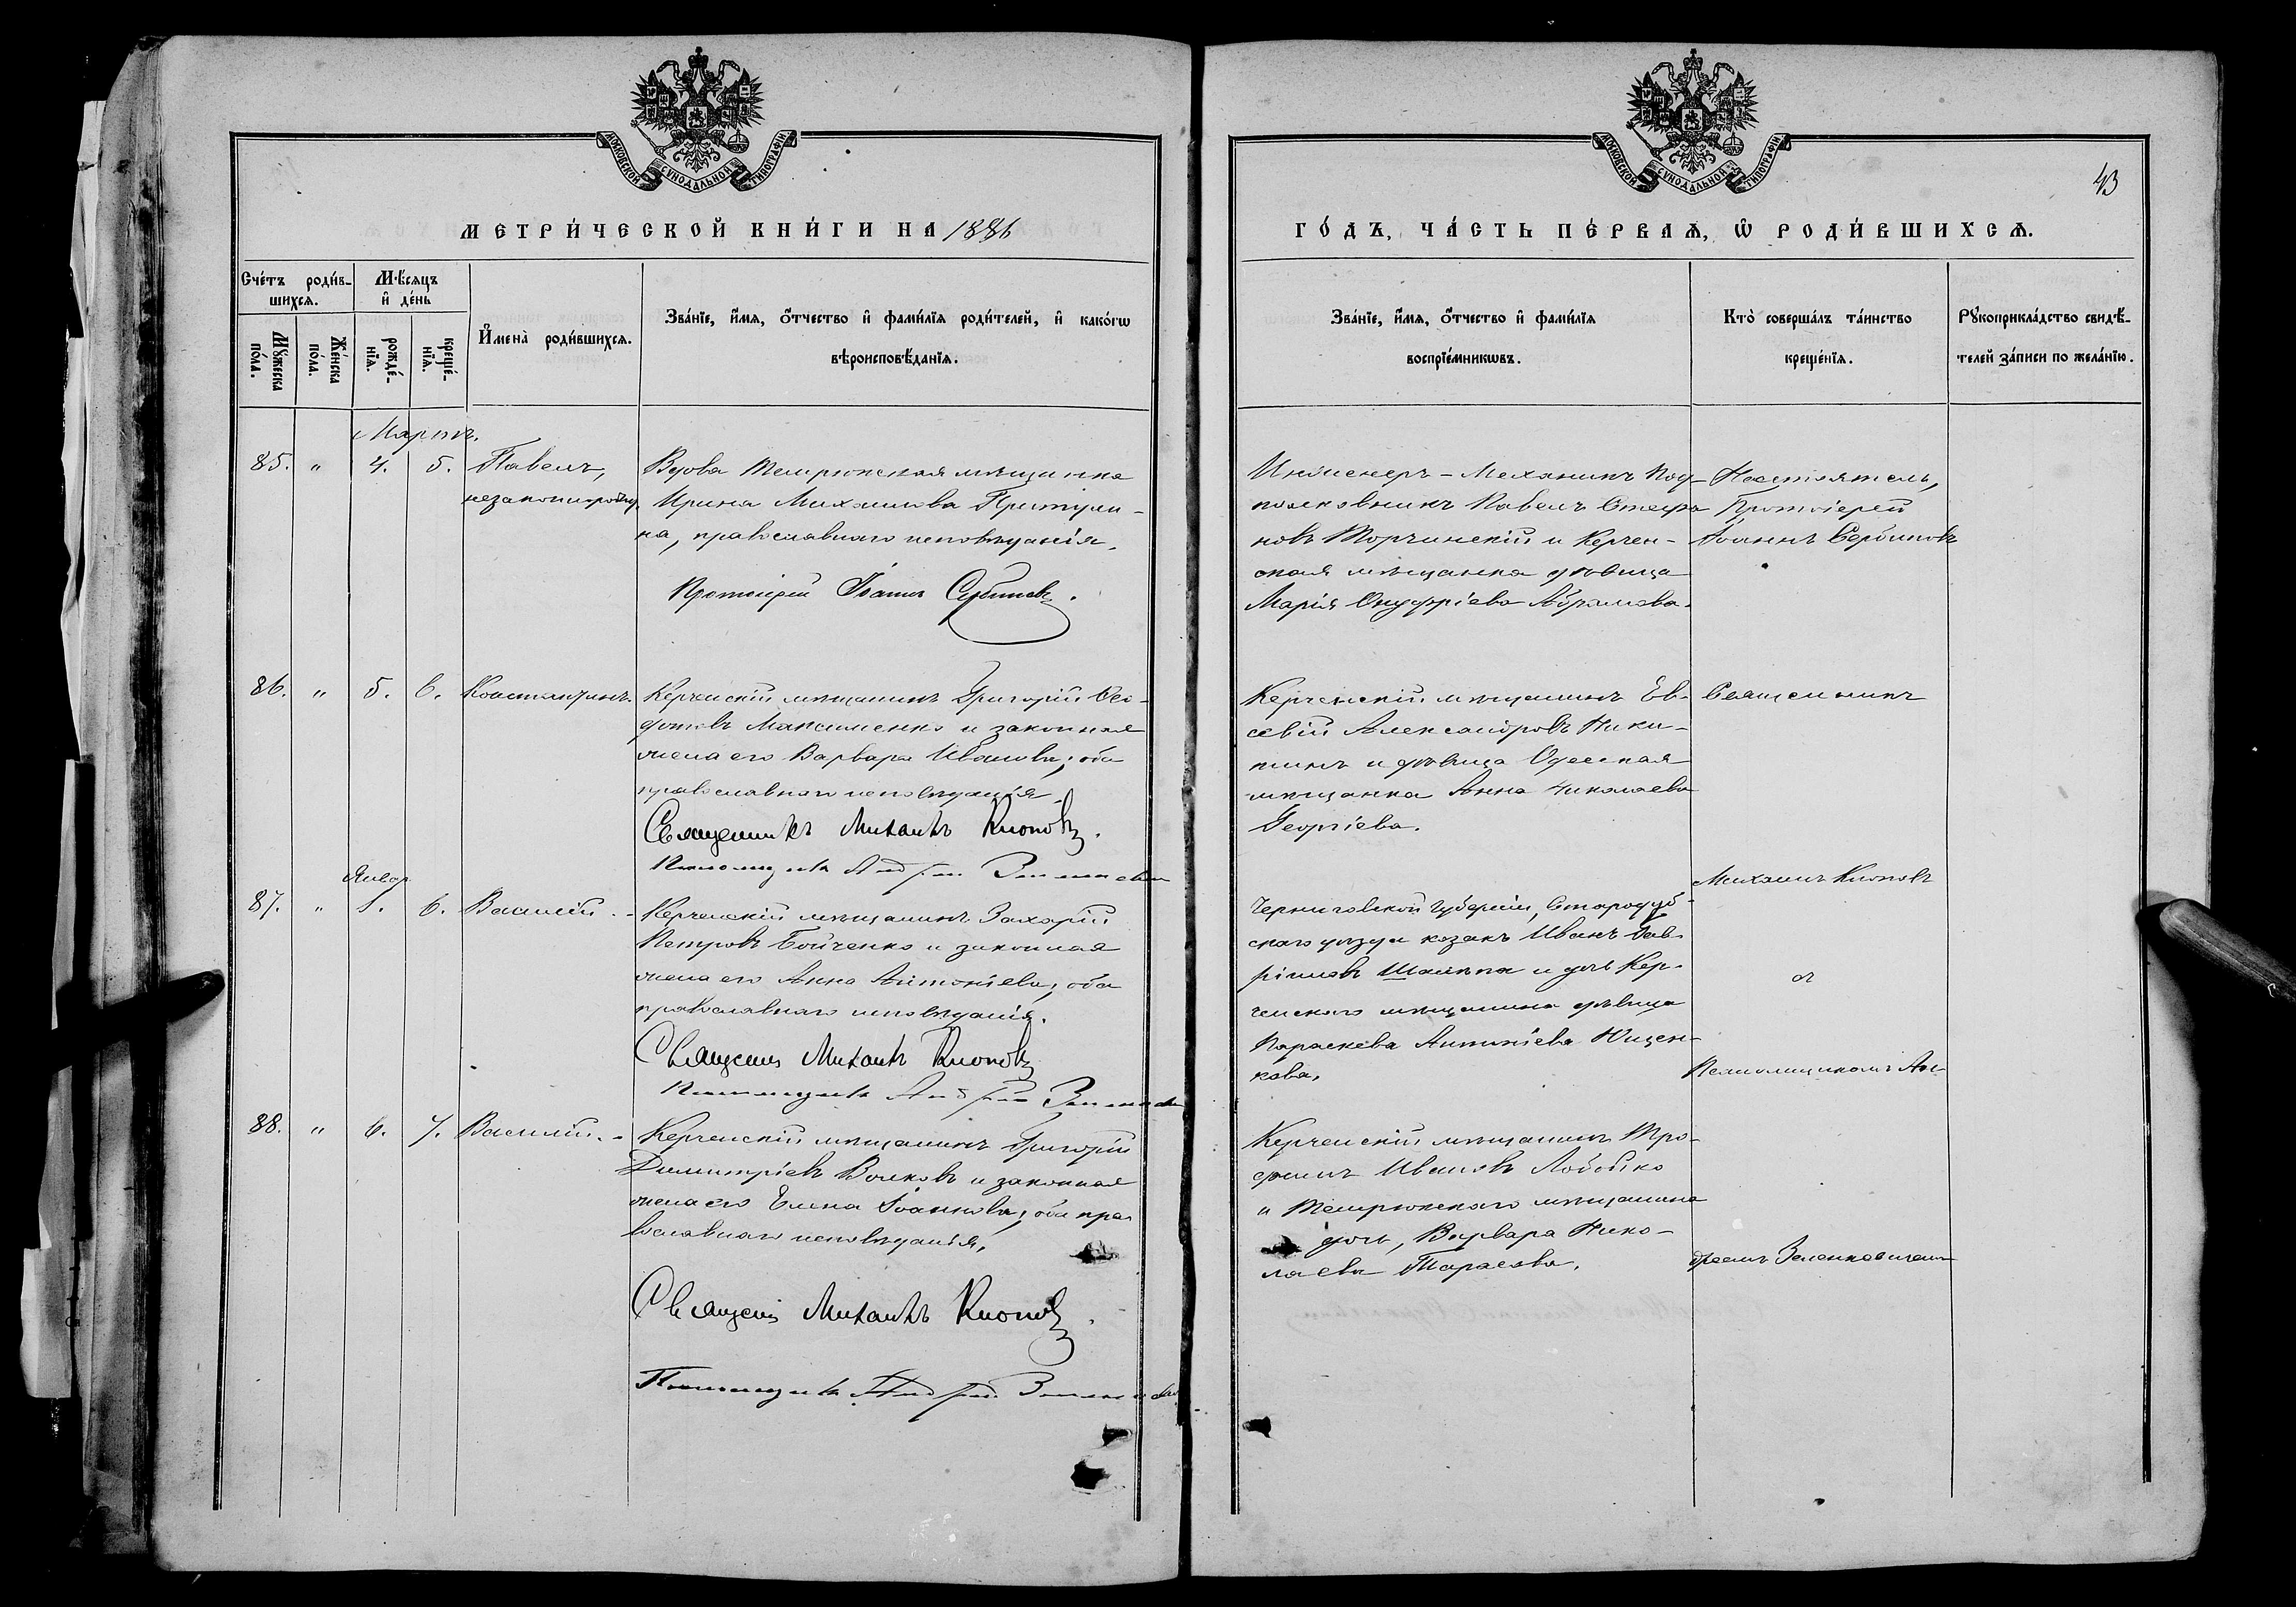 МОСКОВСКОЙ СУНОДАЛЬНОЙ ТИПОГРАФІИ
МЕТРИ́ЧЕСКОЙ КНИ́ГИ НА 1886
Сче́тъ роди́в-
шихсѧ.
Мѣ́сѧцъ
и҆ де́нь
Мꙋ́жеска
по́ла.
Же́нска
по́ла.
рожде́-
нїѧ.
креще́-
нїѧ.
И҆мена̀ роди́вшихсѧ.
Зва́нїе, и҆́мѧ, ѻ҆́тчество и҆ фами́лїѧ роди́телей, и҆ како́гѡ
вѣроисповѣ́данїѧ.
Мартъ.
85. " 4. 5. Павелъ,
незаконнорожд.
Вдова Темрюкская мѣщанка
Ирина Михаилова
на, православнаго исповѣданія.
Протоіерей Іоаннъ Сербиновъ.
86. " 5. 6. Константинъ.
Керченскій мѣщанинъ Григорій Ѳео-
дотовъ Максименко и законная
жена его Варвара Иванова; оба
православнаго исповѣданія.
Священникъ Михаилъ Кноповъ.
Псаломщикъ Андрей
Январ.
87. " 1. 6. Василій.
Керченскій мѣщанинъ Захарій
Петровъ Бойченко и законная
жена его Анна Антоніева; оба
православнаго исповѣданія.
Священ Михаилъ Кноповъ
Псаломщикъ Андрей
88. " 6. 7. Василій.
Керченскій мѣщанинъ Григорій
Димитріевъ Волковъ и законная
жена его Елена Іоаннова; оба пра-
вославнаго исповѣданія.
Священ Михаилъ Кноповъ.
Псаломщикъ Андрей
МОСКОВСКОЙ СУНОДАЛЬНОЙ ТИПОГРАФІИ
43
ГО́ДЪ, ЧА́СТЬ ПЕ́РВАѦ, Ѡ҆ РОДИ́ВШИХСѦ.
Зва́нїе, и҆́мѧ, ѻ҆́тчество и҆ фами́лїѧ
воспрїе́мникѡвъ.
Кто̀ соверша́лъ та́инство
креще́нїѧ.
Рꙋкоприкла́дство свидѣ́-
телей за́писи по жела́нїю.
Инженеръ-Механикъ Под-
полковникъ Павелъ Стефа-
новъ Торчинскій и Керчен-
ская мѣщанка дѣвица
Марія Онуфріева Абрамова.
Настоятель,
Протоіерей
Іоаннъ Сербиновъ
Керченскій мѣщанинъ Ев-
севій Александровъ Ники-
тинъ и дѣвица Одесская
мѣщанка Анна Николаева
Георгіева.
Священникъ
Михаилъ Кноповъ
Черниговской губерніи, Стародуб-
скаго уѣзда козакъ Иванъ Гав-
ріиловъ и дочь Кер-
ченскаго мѣщанина дѣвица
Параскева Антоніева Ющен-
кова.
съ
Псаломщикомъ Ан-
Керченскій мѣщанинъ Тро-
фимъ Ивановъ Лобойко
и Темрюкскаго мѣщанина
дочь, Варвара Нико-
лаева Тарасова.
дреемъ Зеленкевичемъ